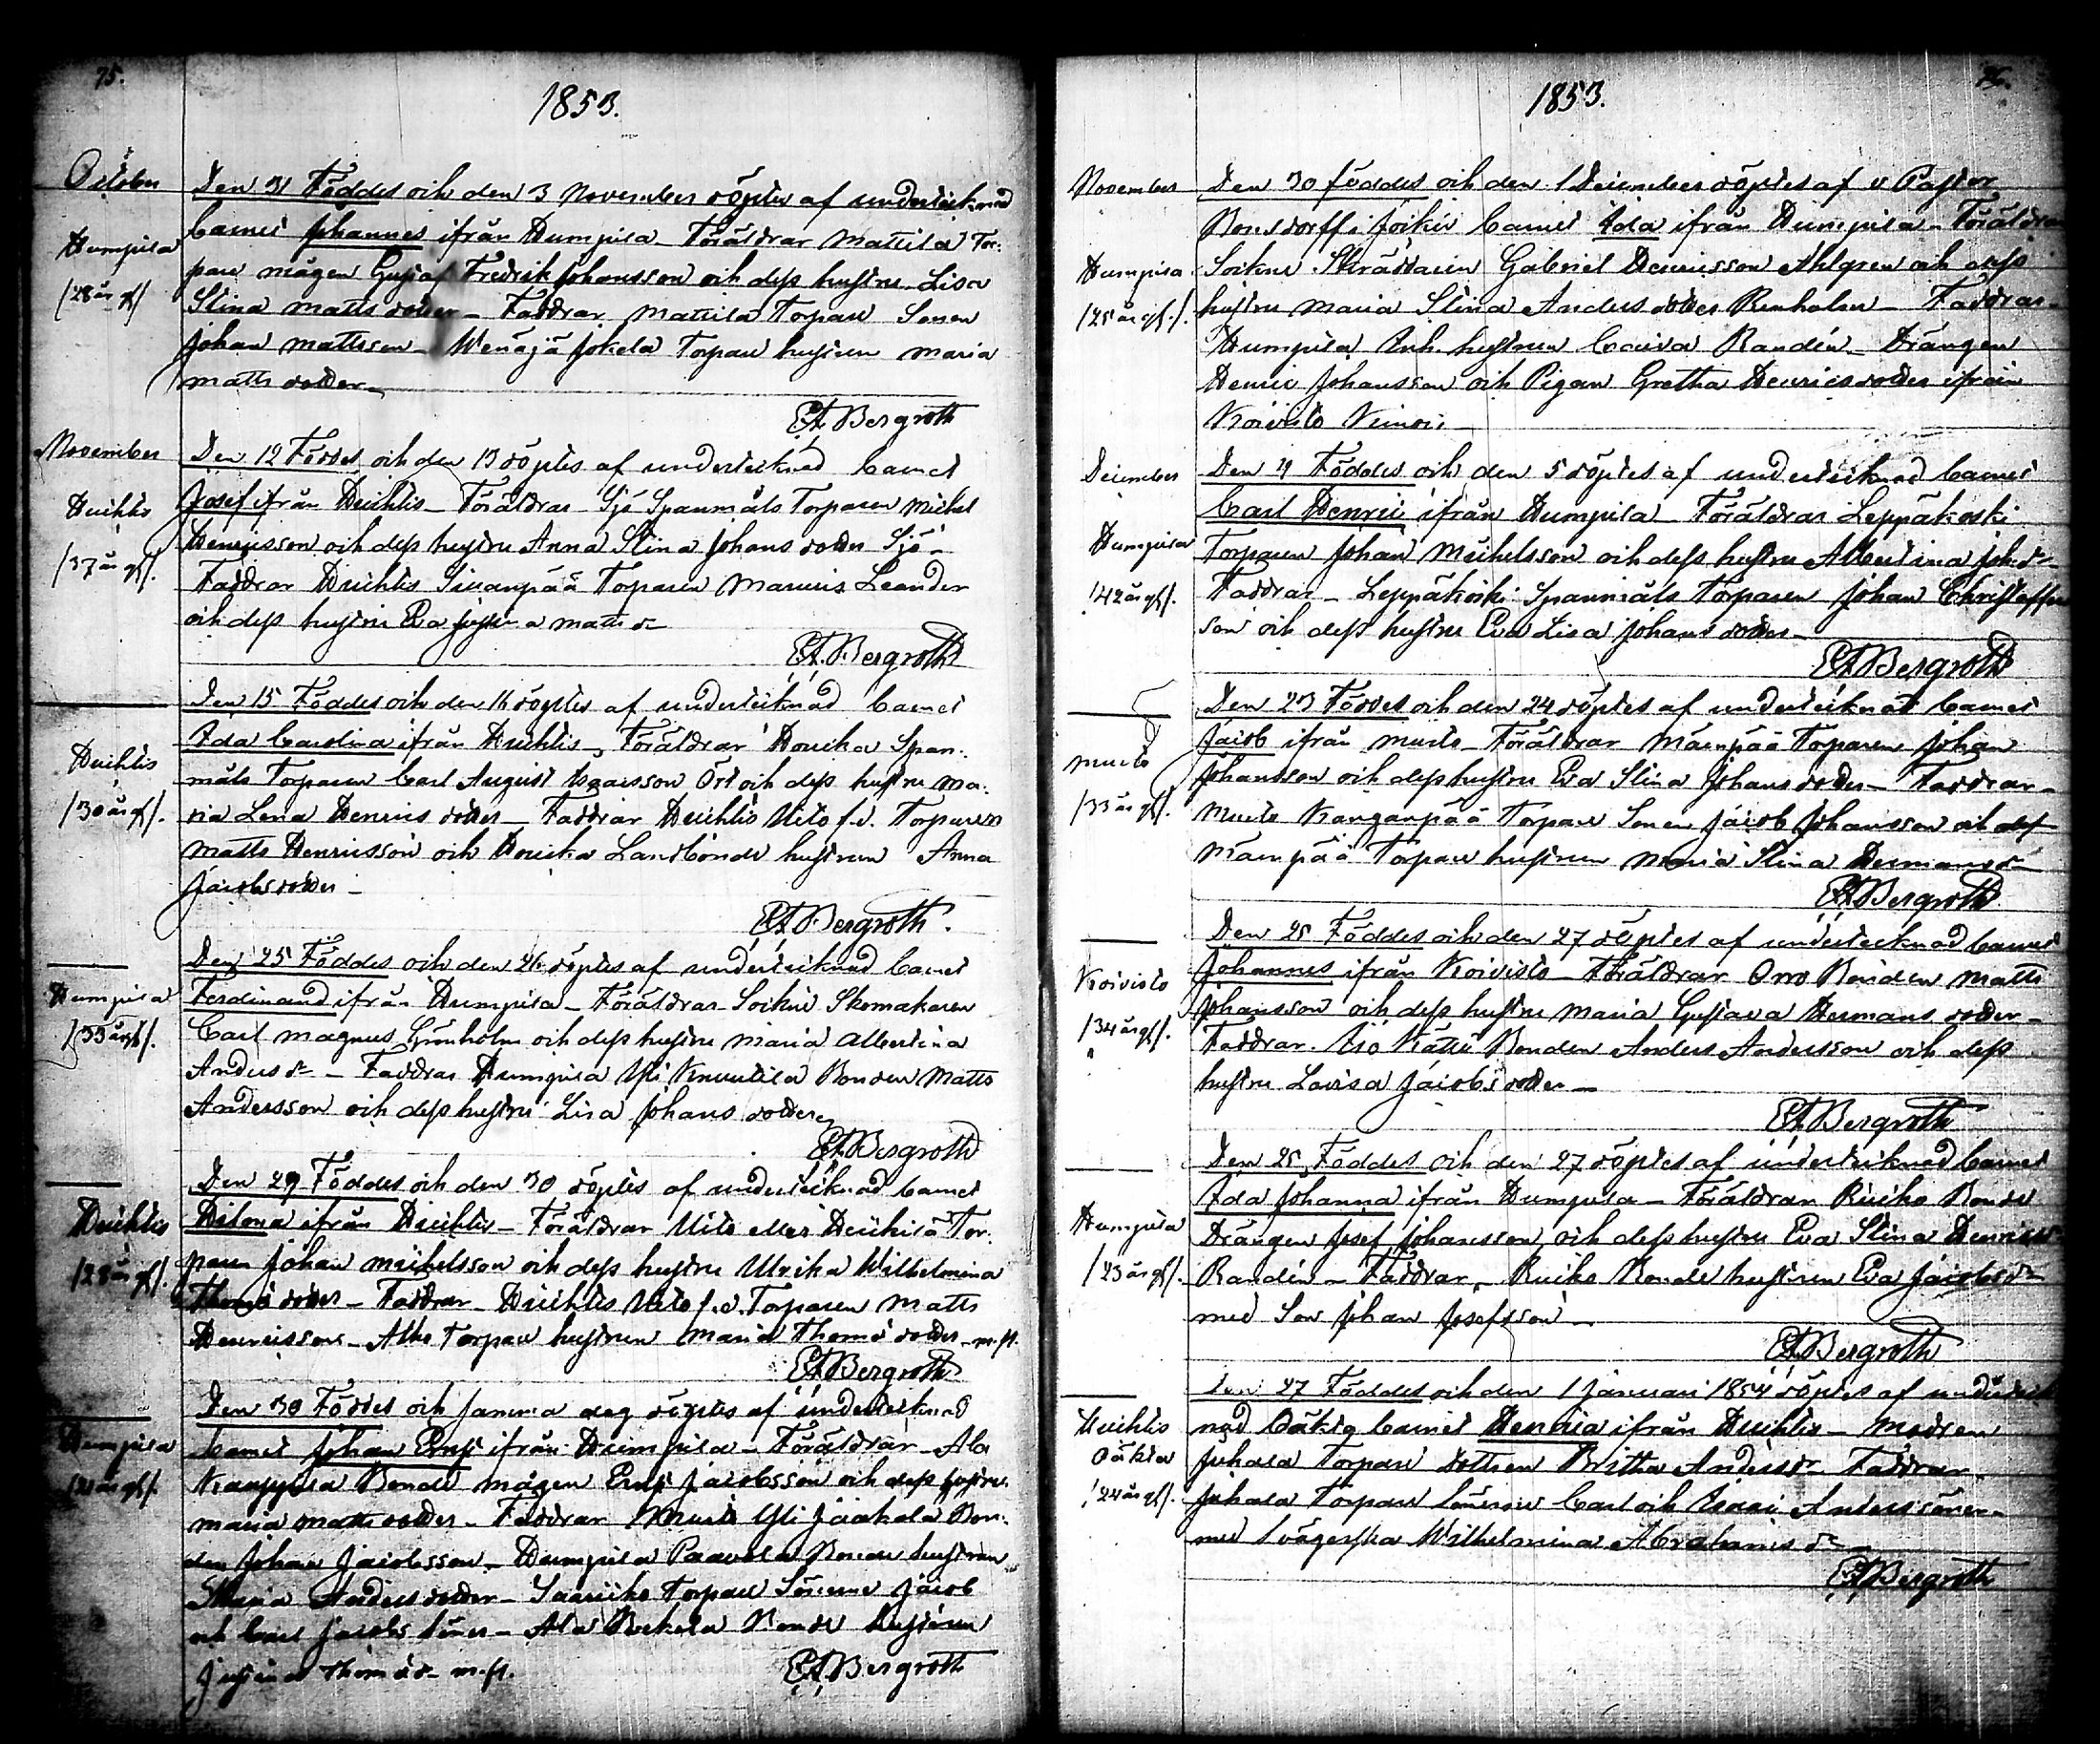 75.
1853.
October
Den 31 Föddes och den 3 November döptes af undertecknad
barnet Johannes ifrån Humpila Föräldrar Mattila Tor-
Humpila
pare mågen Gustaf Fredrik Johansson och dess hustru Lisa
/28 år gl/
Stina Matts dotter - Faddrar Mattila Torpare Sonen
Johan Mattsson - Wenäjä Jokela Torpare hustrun Maria
Matts dotter -
EA Bergroth
November
Den 12 Föddes och den 13 döptes af undertecknad barnet
Huhtis
Josef ifrån Huhtis - Föräldrar Sjö Spanmåls Torparen Michel
Henricsson och dess hustru Anna Stina Johans dotter Sjö -
/37 år gl/.
Faddrar Huhtis Torparen Marcus Leander
och dess hustru Eva Matts dr
EA Bergroth
Den 15 Föddes och den 16 döptes af undertecknad barnet
Ida Carolina ifrån Huhtis, Föräldrar Span-
Huhtis
måls Torparen Carl August Isaacsson Ört och dess hustru Ma-
/30 år gl/.
ria Lena Henrics dotter - Faddrar Huhtis Uito f.d. Torparen
Matts Henricsson och Landbonde hustrun Anna
Jacobs dotter -
EA Bergroth.
Den 25 Föddes och den 26 döptes af undertecknad barnet
Humpila
Ferdinand ifrån Humpila - Föräldrar Sockne Skomakaren
/33 år gl/.
Carl Magnus Grönholm och dess hustru Maria Albertina
Anders dr - Faddrar Humpila Yli Knuutila Bonden Matts
Andersson och dess hustru Lisa Johans dotter
EA Bergroth
Den 29 Föddes och den 30 döptes af undertecknad barnet
Huhtis
ifrån Huhtis - Föräldrar Uito eller Tor-
/28 år gl/.
paren Johan Michelsson och dess hustru Ulrika Wilhelmina
Thomæ dotter - Faddrar - Huhtis Uito f.d. Torparen Matts
Henricsson - Torpare hustrun Maria Thomæ dotter - m.fl.
EA Bergroth
Den 30 Föddes och samma dag döptes af undertecknad
Humpila
barnet Johan Ernst ifrån Humpila - Föräldrar - Ala
/21 år gl/.
Bonde mågen Ernst Jacobsson och dess hustru
Maria Matts dotter - Faddrar Murto Yli Jaakola Bon-
den Johan Jacobsson - Humpila Paavola Bonde hustrun
Maria Anders dotter - Torpare Sönerne Jacob
och Carl Jacobs söner - Ala Bonde hustrun
Justina Thomæ dr - m.fl.
EA Bergroth
76.
1853.
November
Den 30 föddes och den 1 December döptes af v Pastor
Bonsdorff i Jockis barnet Ida ifrån Humpila - Föräldrar
Humpila
Sockne Skräddaren Gabriel Henricsson Ahlgren och dess
/25 år gl/.
hustru Maria Stina Anders dotter Renholm - Faddrar -
Humpila Inh. hustrun Lovisa Randén - Drängen
Henric Johansson och Pigan Gretha Henrics dotter ifrån
Koivisto
December
Den 4 Föddes och den 5 döptes af undertecknad barnet
Carl Henric ifrån Humpila Föräldrar Leppäkoski
Humpila
Torparen Johan Michelsson och dess hustru Albertina Joh.dr
/42 år gl/.
Faddrar - Leppäkoski Spanmåls Torparen Johan Christoffers
son och dess hustru Eva Lisa Johans dotter -
EA Bergroth
Den 23 Föddes och den 24 döptes af undertecknad barnet
Murto
Jacob ifrån Murto - Föräldrar Mäenpää Torparen Johan
Johansson och dess hustru Eva Stina Johans dotter - Faddrar -
/33 år gl/.
Murto Kanganpää Torpare Sonen Jacob Johansson och
Mäenpää Torpare hustrun Maria Stina Hermans dr
EA Bergroth
Den 25 Föddes och den 27 döptes af undertecknad barnet
Koivisto
Johannes ifrån Koivisto - Föräldrar Orro Bonden Matts
/34 år gl/.
Johansson och dess hustru Maria Gustava Hermans dotter -
Faddrar. Iso Bonden Anders Andersson och dess
hustru Lovisa Jacobs dotter -
EA Bergroth
Den 25 Föddes och den 27 döptes af undertecknad barnet
Ida Johanna ifrån Humpila - Föräldrar Bonde
Humpila
Drängen Josef Johansson och dess hustru Eva Stina Henrics
/23 år gl/.
Randén - Faddrar - Bonde hustrun Eva Jacobs dr
med Son Johan Josefsson -
EA Bergroth
Den 27 Föddes och den 1 Januari 1854 döptes af underteck
Huhtis
nad oäkta barnet Henrica ifrån Huhtis - Modren
oäkta
Juhala Torpare dottren Britha Anders dr Faddrar -
/24 år gl/.
Juhala Torpare Sönerne Carl och Isaac Anders söner -
med Svägerska Wilhelmina Abrahams dr -
EA Bergroth